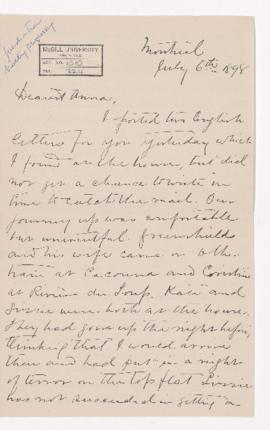 McGILL UNIVERSITY
ACC. NO.
Montreal
July 6th 1898
Dearest Anna,
I posted two English
letters for you yesterday which
I found at the house, but did
not get a chance to write in
time to catch the mail. Our
journey up was comfortable
but uneventful.
and his wife came on the
train at Cacouna and
at Rivière du Loup. Katie and
were both at the house.
They had gone up the night before,
thinking that I would arrive
then and had put in a night
of terror on the top flat
has not succeeded in getting a